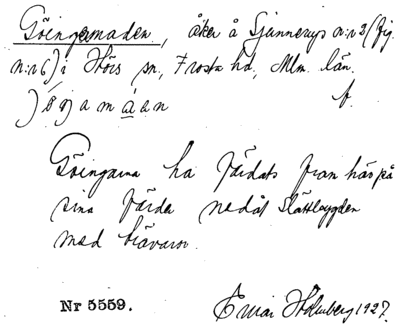 Göingamaden, åker å Sjunnerup n:r 2 (fig.
n:r 6) i Hörs sn, Frosta hd, Mlm. län.
f.
Göingarna ha färdats fram här på
sina färder nedåt slättbygden
med trävaror.
Nr 5559. Einar Holmberg 1927.